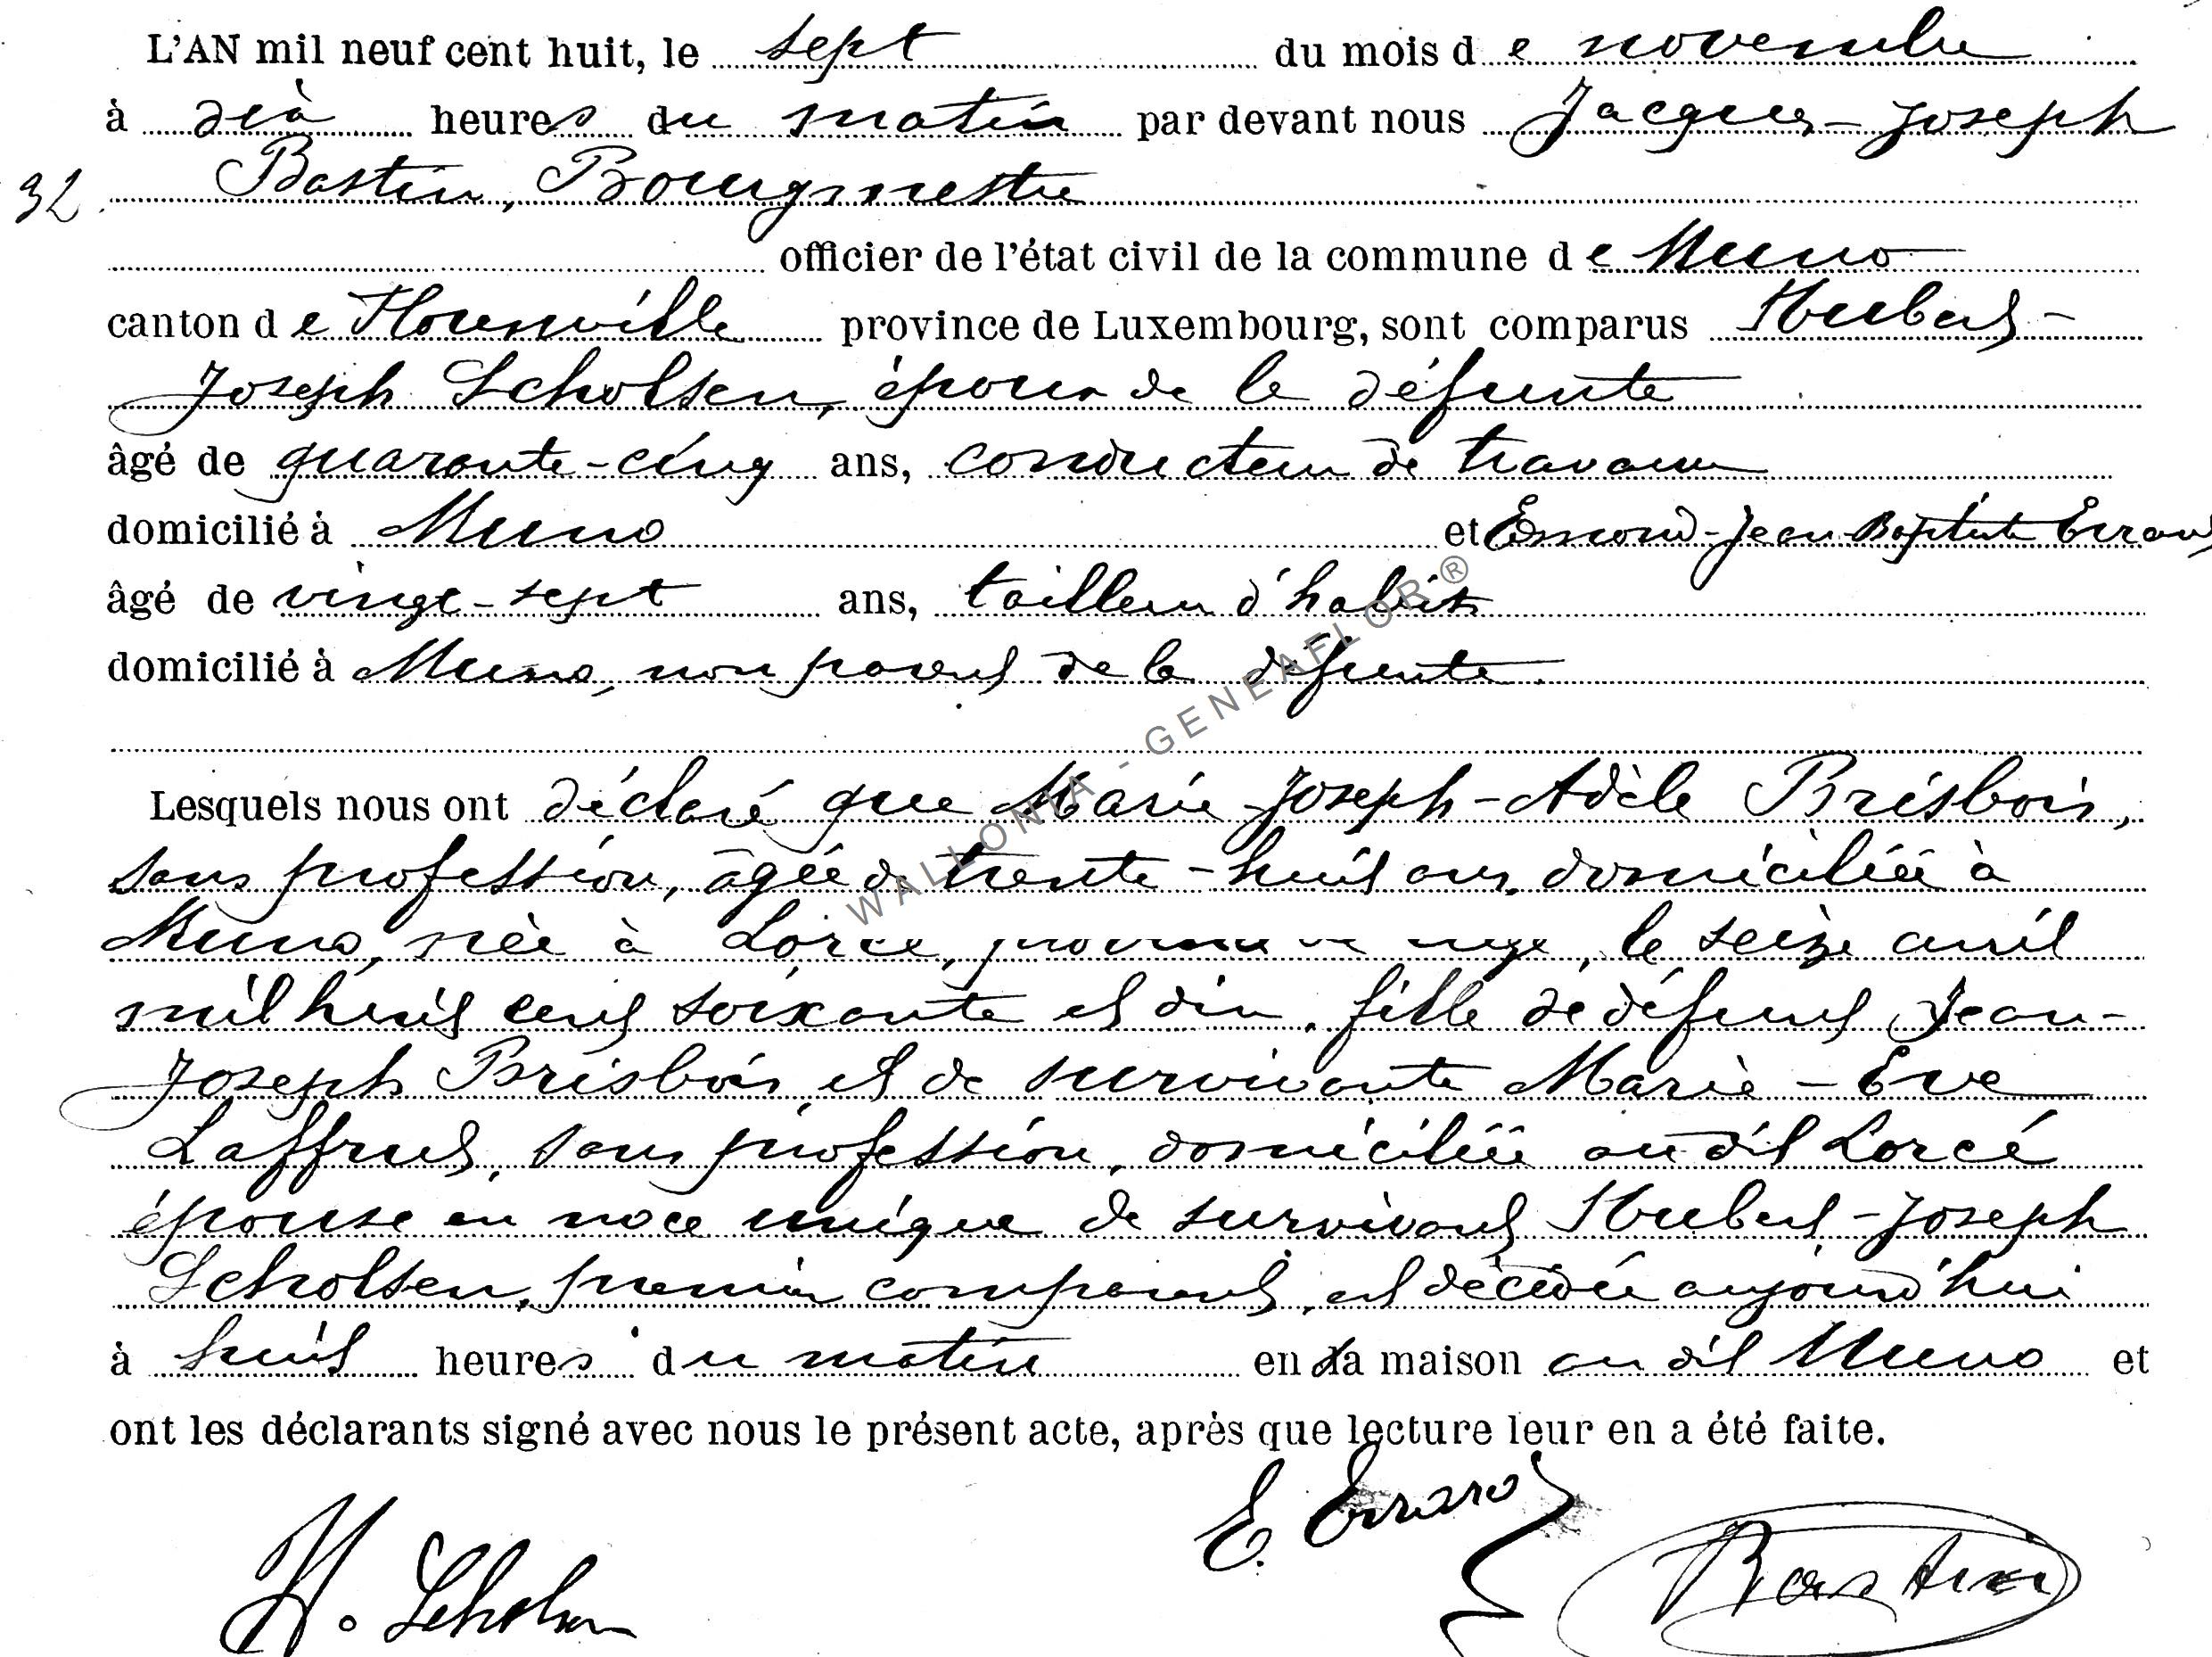 L'AN mil neuf cent huit, le sept du mois de novembre
à dix heures du matin par devant nous Jacques-Joseph
32. Bastin, Bourgmestre
officier de l'état civil de la commune de Muno
canton de Florenville province de Luxembourg, sont comparus Hubert-
Joseph Scholsen, époux de la défunte
âgé de quarante-cinq ans, conducteur de travaux
domicilié à Muno et Edmond-Jean-Baptiste Errard
âgé de vingt-sept ans, tailleur d'habits
domicilié à Muno, non parent de la défunte.
Lesquels nous ont déclaré que Marie-Joseph-Adèle Brisbois,
sans profession, âgée de trente-huit ans, domiciliée à
Muno, née à Lorcé, province de Liège, le seize avril
mil huit cent soixante et dix, fille de défunt Jean-
Joseph Brisbois et de survivante Marie-Eve
Laffrut, sans profession, domiciliée au dit Lorcé
épouse en noce unique de survivant Hubert-Joseph
Scholsen, premier comparant, est décédée aujourd'hui
à huit heures du matin en sa maison au dit Muno et
ont les déclarants signé avec nous le présent acte, après que lecture leur en a été faite.
E. Errard
H. Scholsen Bastin
WALLONIA - GENEAFLOR ®